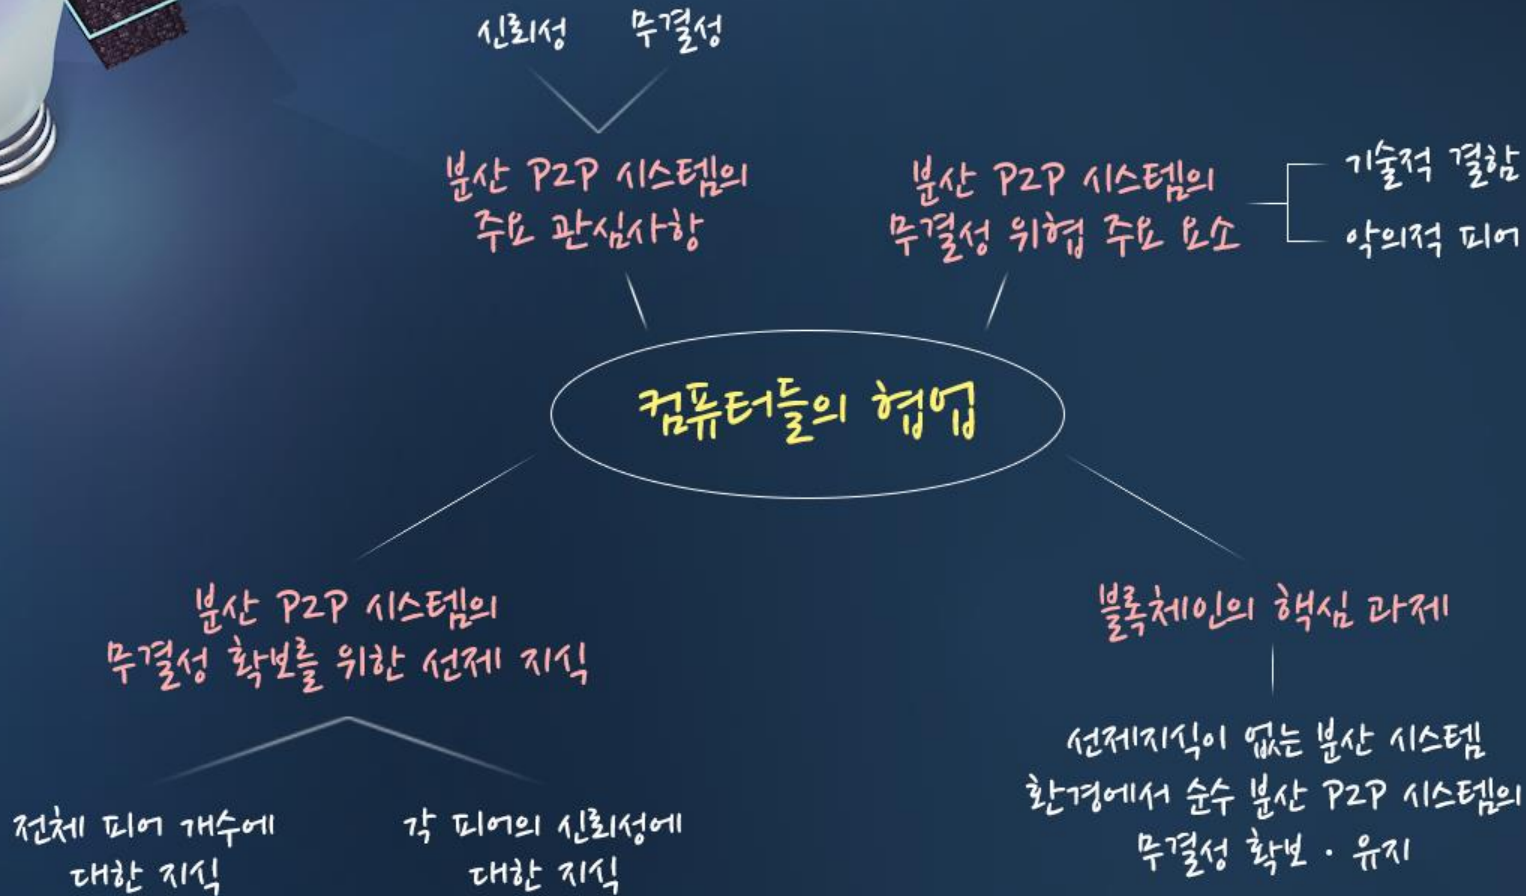 신뢰성 무결성
분산 P2P 시스템의
주요 관심사항
분산 P2P 시스템의
무결성 위협 주요 요소
기술적 결함
악의적 피어
컴퓨터들의 협업
분산 P2P 시스템의
무결성 확보를 위한 선제 지식
전체 피어 개수에
대한 지식
각 피어의 신뢰성에
대한 지식
블록체인의 핵심 과제
선제지식이 없는 분산 시스템
환경에서 순수 분산 P2P 시스템의
무결성 확보 · 유지